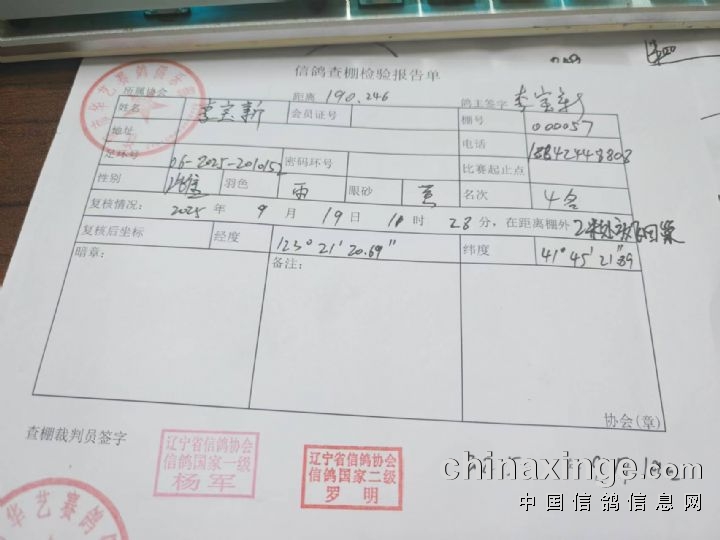 信鸽查棚检验报告单
所属协会 距离 190.246 鸽主签字 李宝新
姓名 李宝新 会员证号 棚号 000057
地址 电话 18842448808
足环号 06-2025-201015 密码环号 比赛起止点
性别 雄 羽色 雨 眼砂 黄 名次 4名
复核情况: 2025 年 9 月 19 日 时 28 分,在距离棚外
复核后坐标 经度 123° 21′ 20.69″ 纬度 41° 45′ 21.89″
暗章: 备注:
协会(章)
查棚裁判员签字
辽宁省信鸽协会
信鸽国家一级
杨军
辽宁省信鸽协会
信鸽国家二级
罗明
华艺赛鸽
chinaxinge.com
中国信鸽信息网